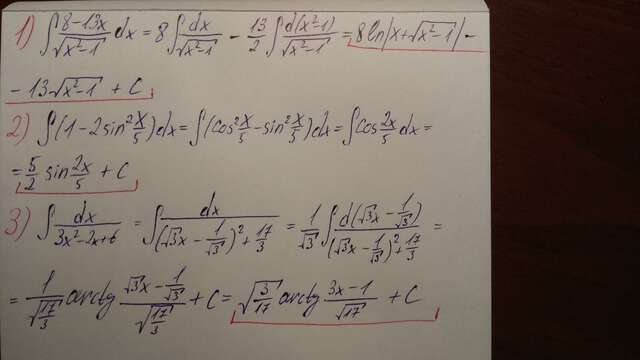 1) ∫ (8-13x)/√(x²-1) dx = 8∫ dx/√(x²-1) - 13/2 ∫ d(x²-1)/√(x²-1) = 8ln|x+√(x²-1)| -
- 13√(x²-1) + C
2) ∫(1-2sin² x/5)dx = ∫(cos² x/5 - sin² x/5)dx = ∫cos 2x/5 dx =
= 5/2 sin 2x/5 + C
3) ∫ dx/(3x²-2x+6) = ∫ dx/((√3x - 1/√3)² + 17/3) = 1/√3 ∫ d(√3x - 1/√3)/((√3x - 1/√3)² + 17/3) =
= 1/√(17/3) arctg (√3x - 1/√3)/√(17/3) + C = √(3/17) arctg (3x-1)/√17 + C